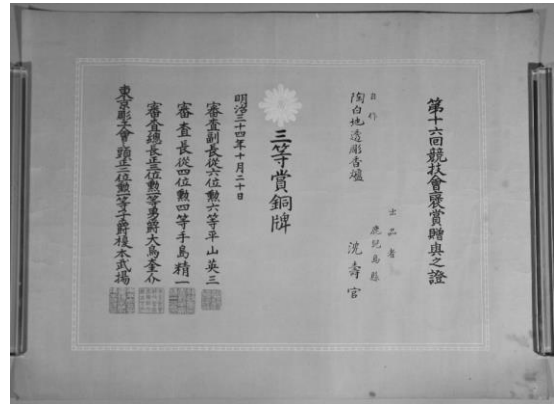 第十六回競技會褒賞贈與之證
出品者
鹿児島縣
沈壽官
自作
陶白地透彫香爐
三等賞銅牌
明治三十四年十月二十日
審査副長從六位勲六等平山英三
審査長從四位勲四等手島精一
審査總長正三位勲二等男爵大鳥圭介
東京彫工會々頭正二位勲一等子爵榎本武揚